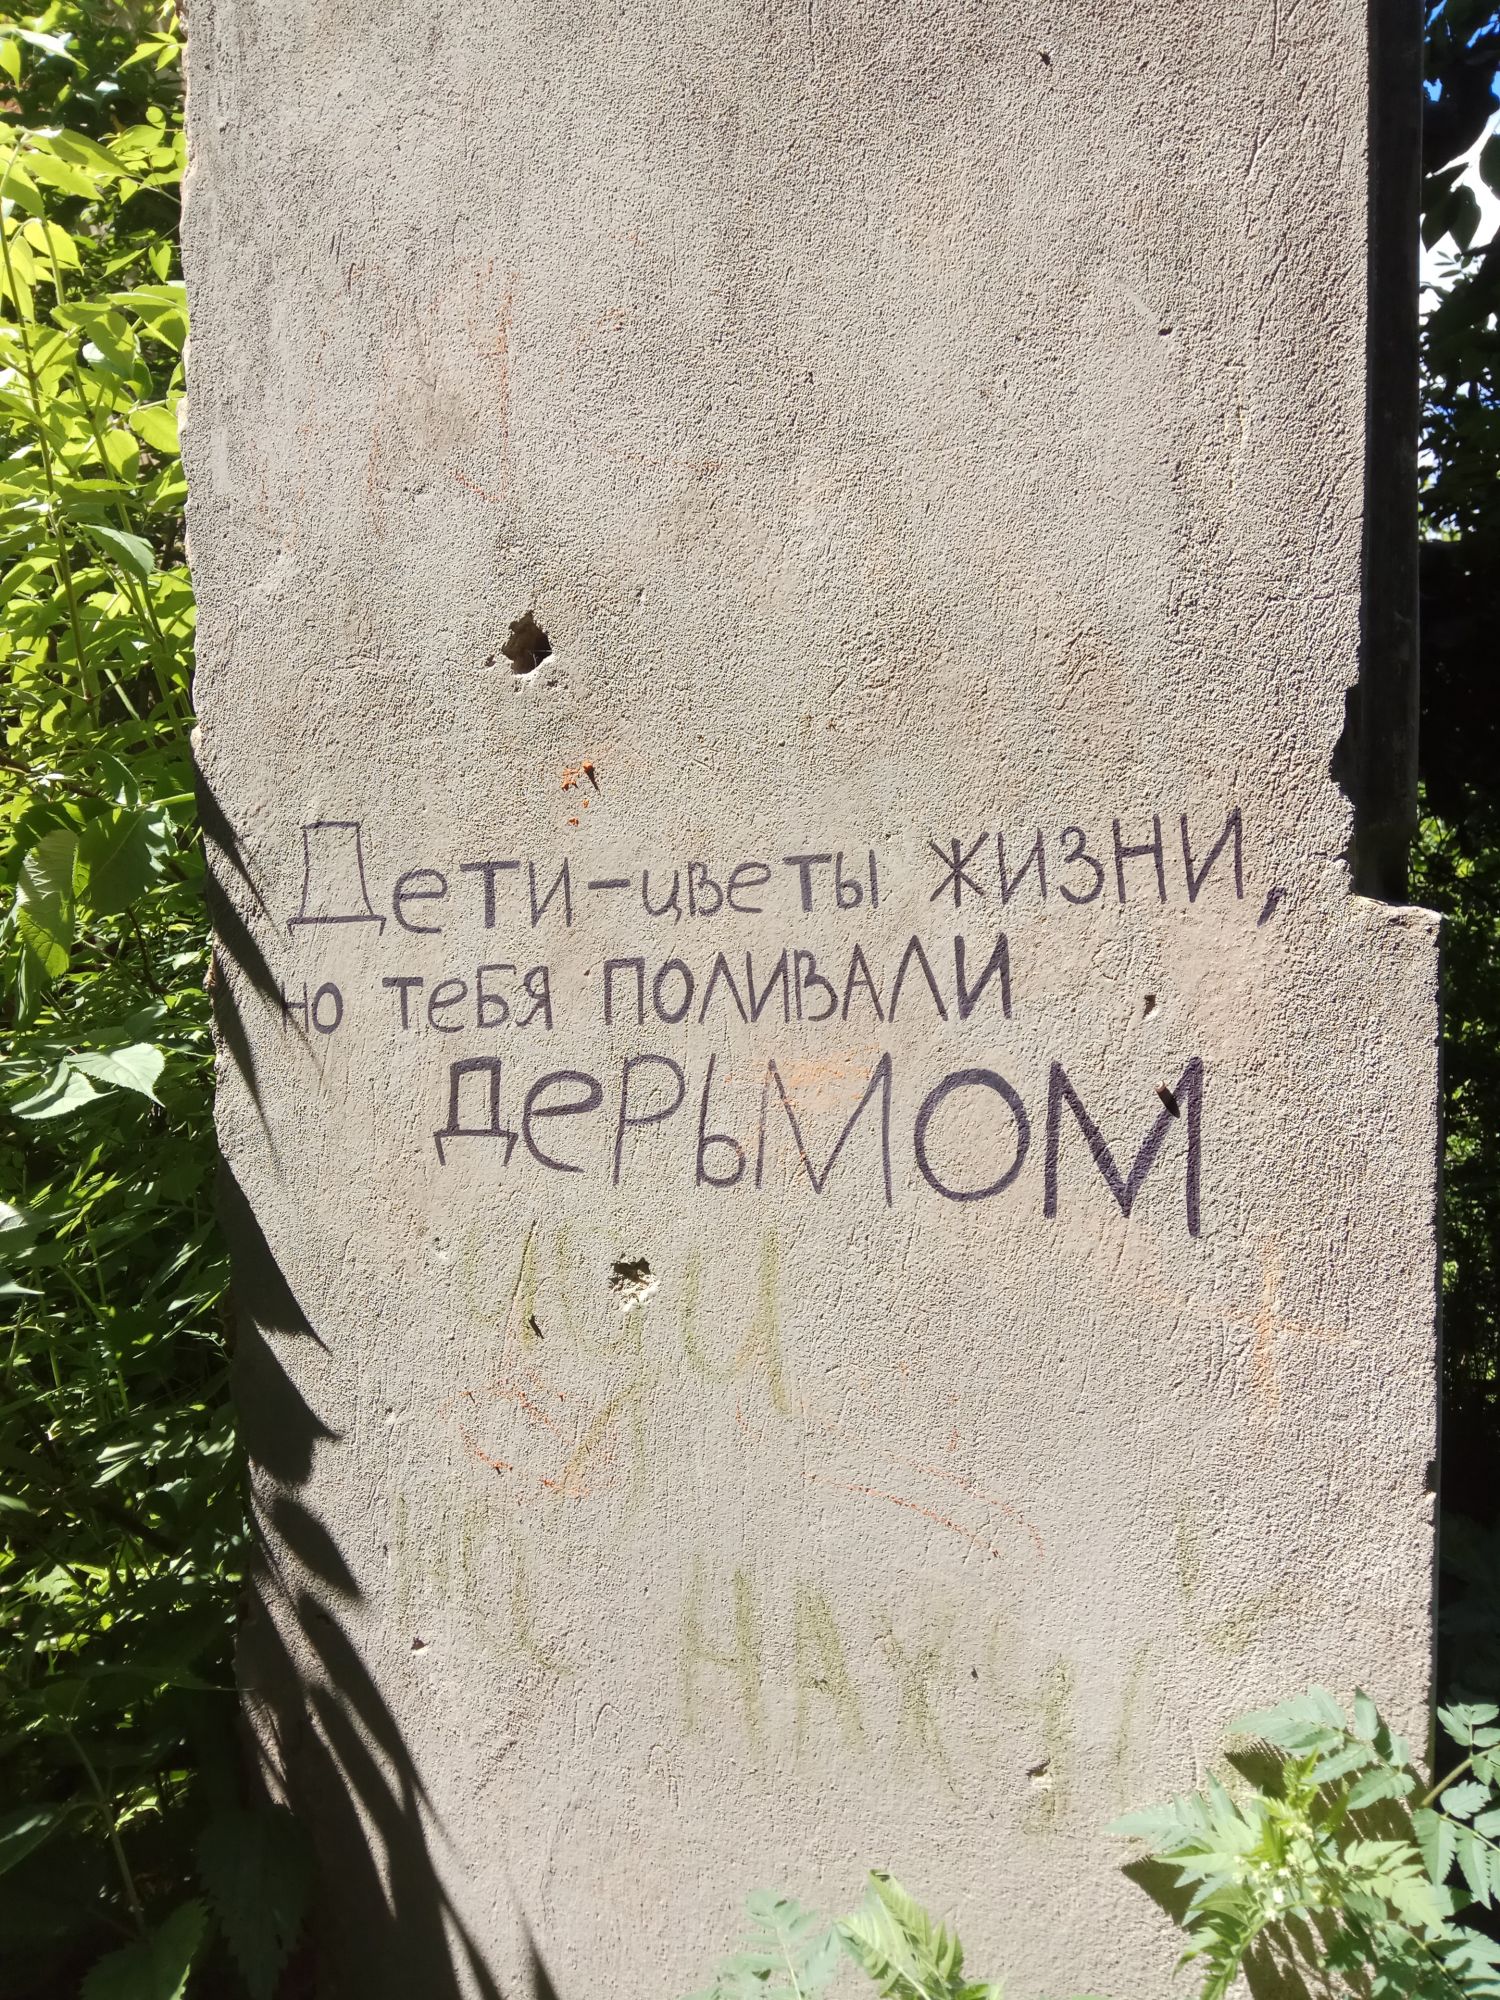 Дети-цветы жизни,
но тебя поливали
дерьмом